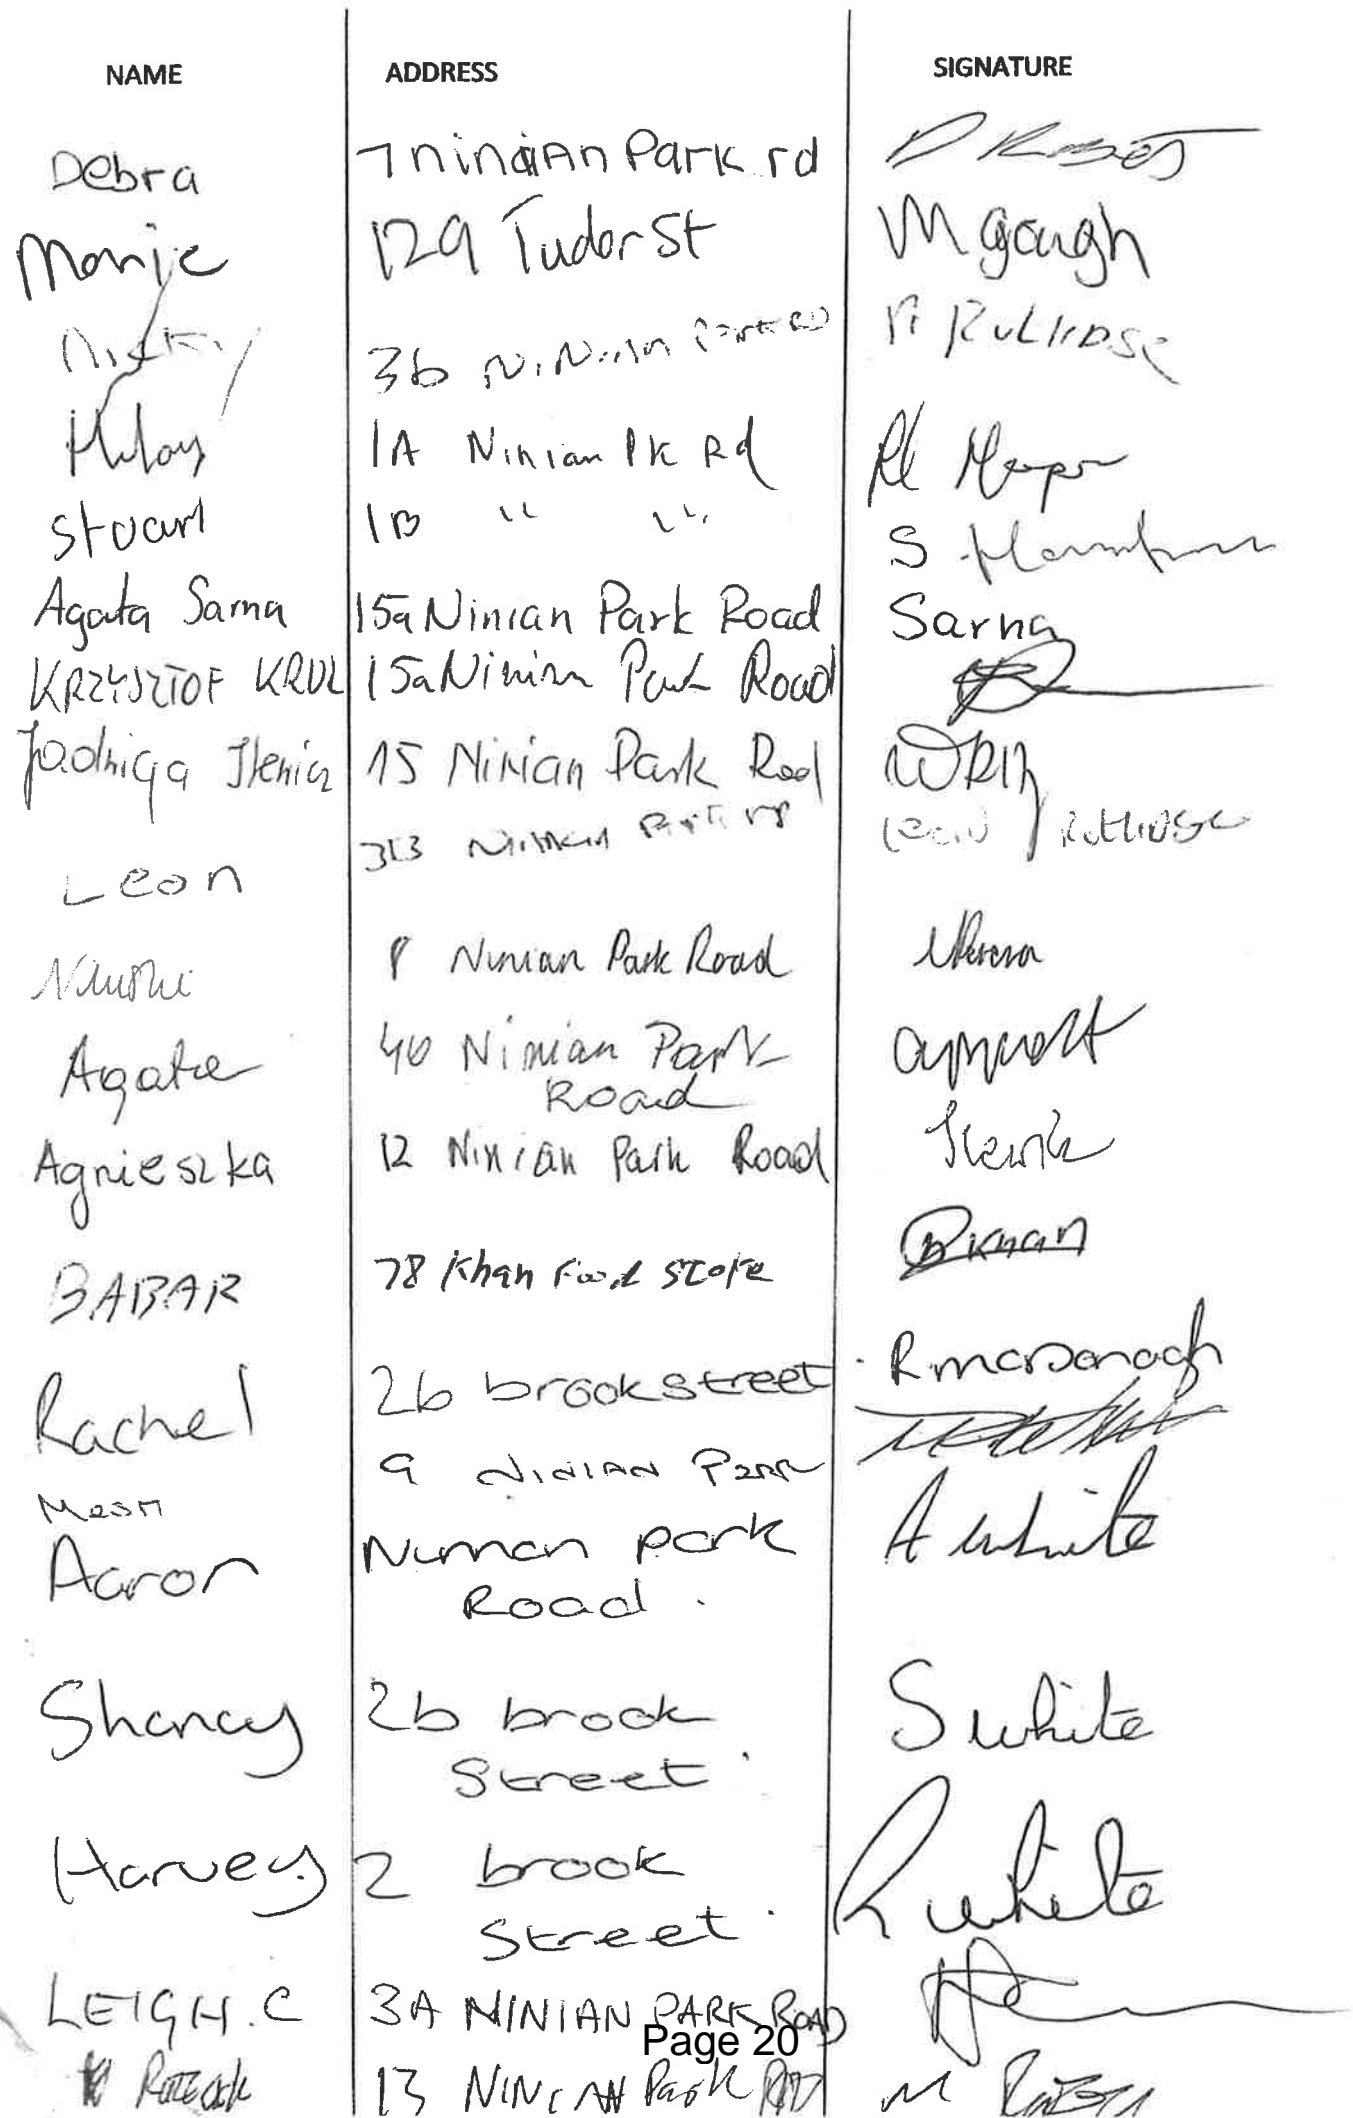 NAME ADDRESS SIGNATURE
Debra 7 ninian Park rd
129 Tudor St M gough
Nicky 3b Ninian Park RD
1A Ninian Pk Rd
Stuart 1B " " S
Agata Sarna 15a Ninian Park Road Sarna
KRZYSZTOF KRUL 15a Ninian Park Road
15 Ninian Park Road
Leon 3B Ninian Park rd Leon Rutlidge
8 Ninian Park Road
40 Ninian Park
Road
Agnieszka 12 Ninian Park Road
BABAR 78 Khan Food Store B Khan
Rachel 2b brook street. R mcDonagh
9 NINIAN PARK
Aaron Ninian park A white
Road.
2b brook S white
Street.
Harvey 2 brook white
Street.
LEIGH.C 3A NINIAN PARK ROAD
Page 20
13 NINIAN Park RD M